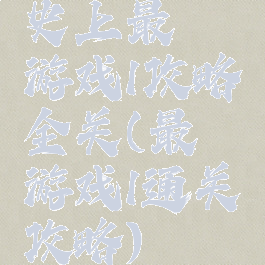 史上最
游戏|攻略
全关(最
游戏|通关
攻略)